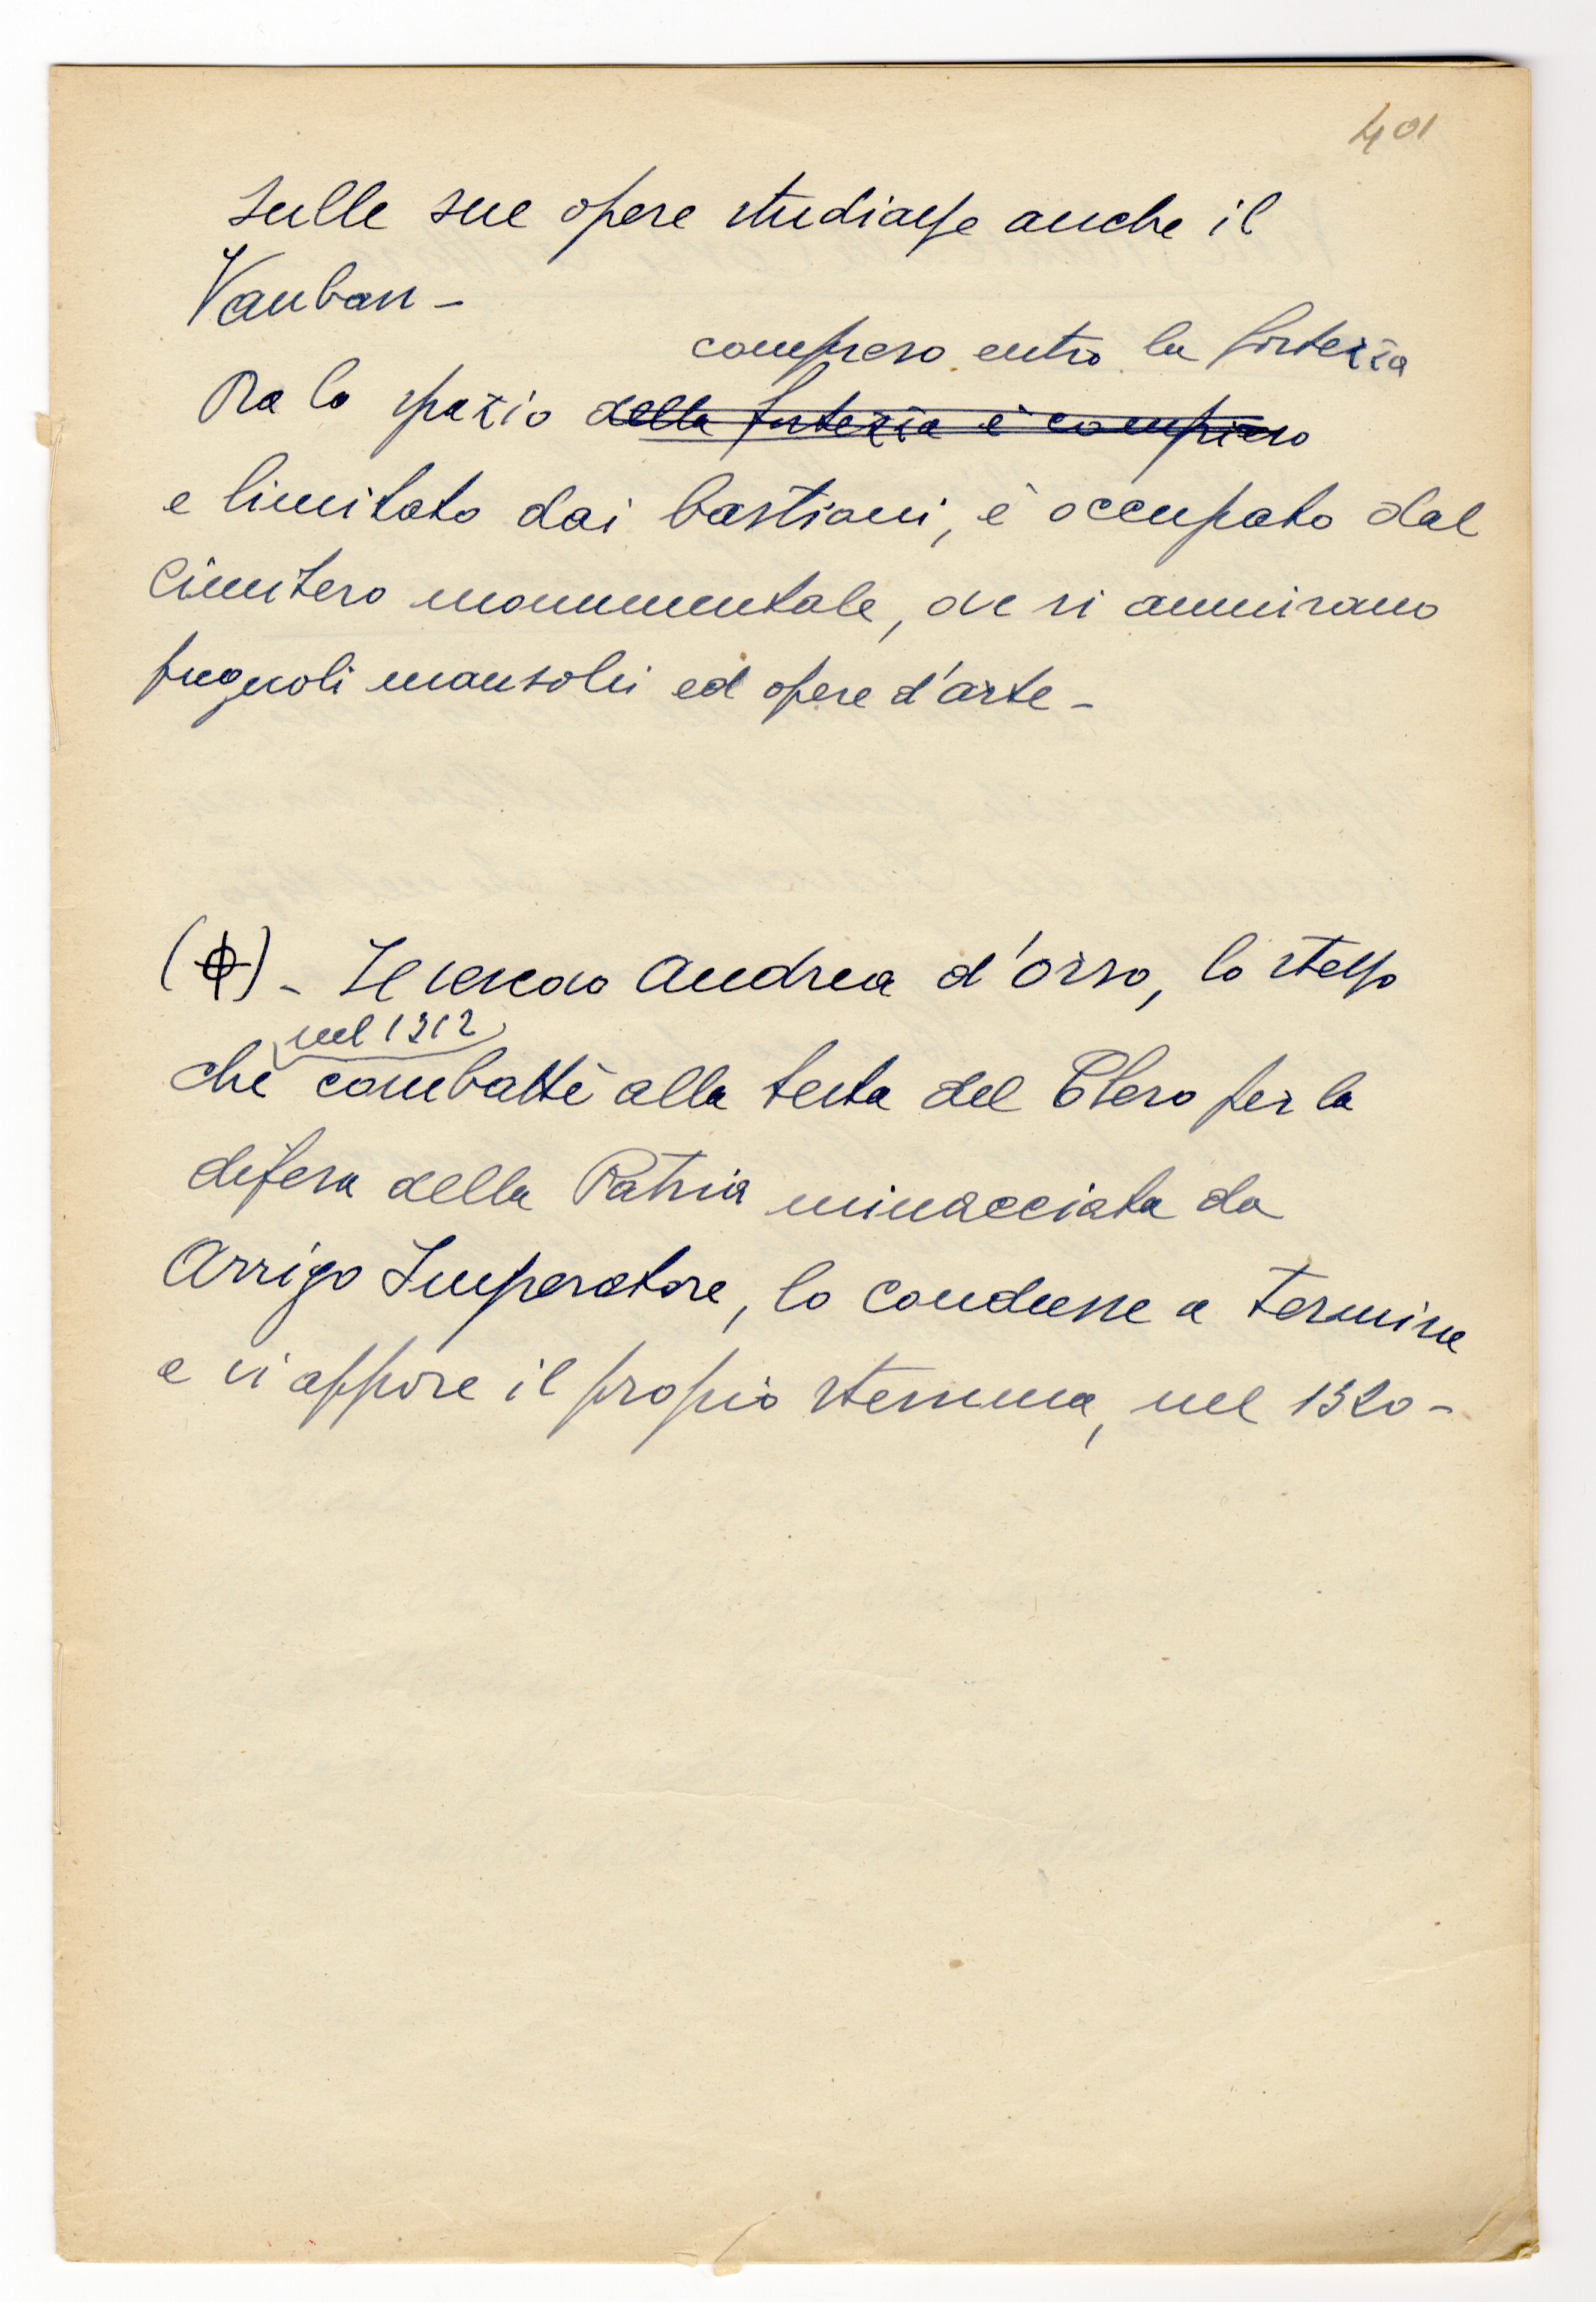 401
sulle sue opere studiasse anche il
Vauban -
compreso entro la fortezza
Ora lo spazio della fortezza è compreso
e limitato dai bastioni, è occupato dal
Cimitero monumentale, ove si ammirano
pregevoli mausolei ed opere d'arte -
( ) - Il vescovo Andrea d'Orso, lo stesso
nel 1312
che combattè alla testa del Clero per la
difesa della Patria minacciata da
Arrigo Imperatore, lo condusse a termine
e vi appose il proprio stemma, nel 1320 -